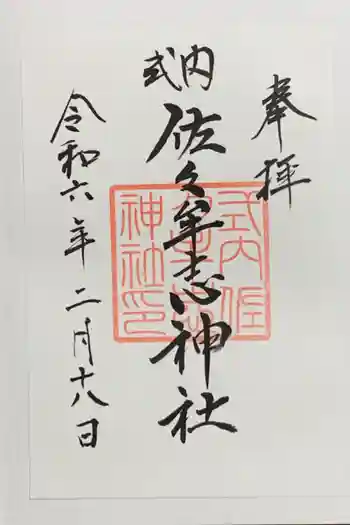 奉拝
式内
佐久牟志神社
式内佐久牟志神社印
令和六年二月十八日